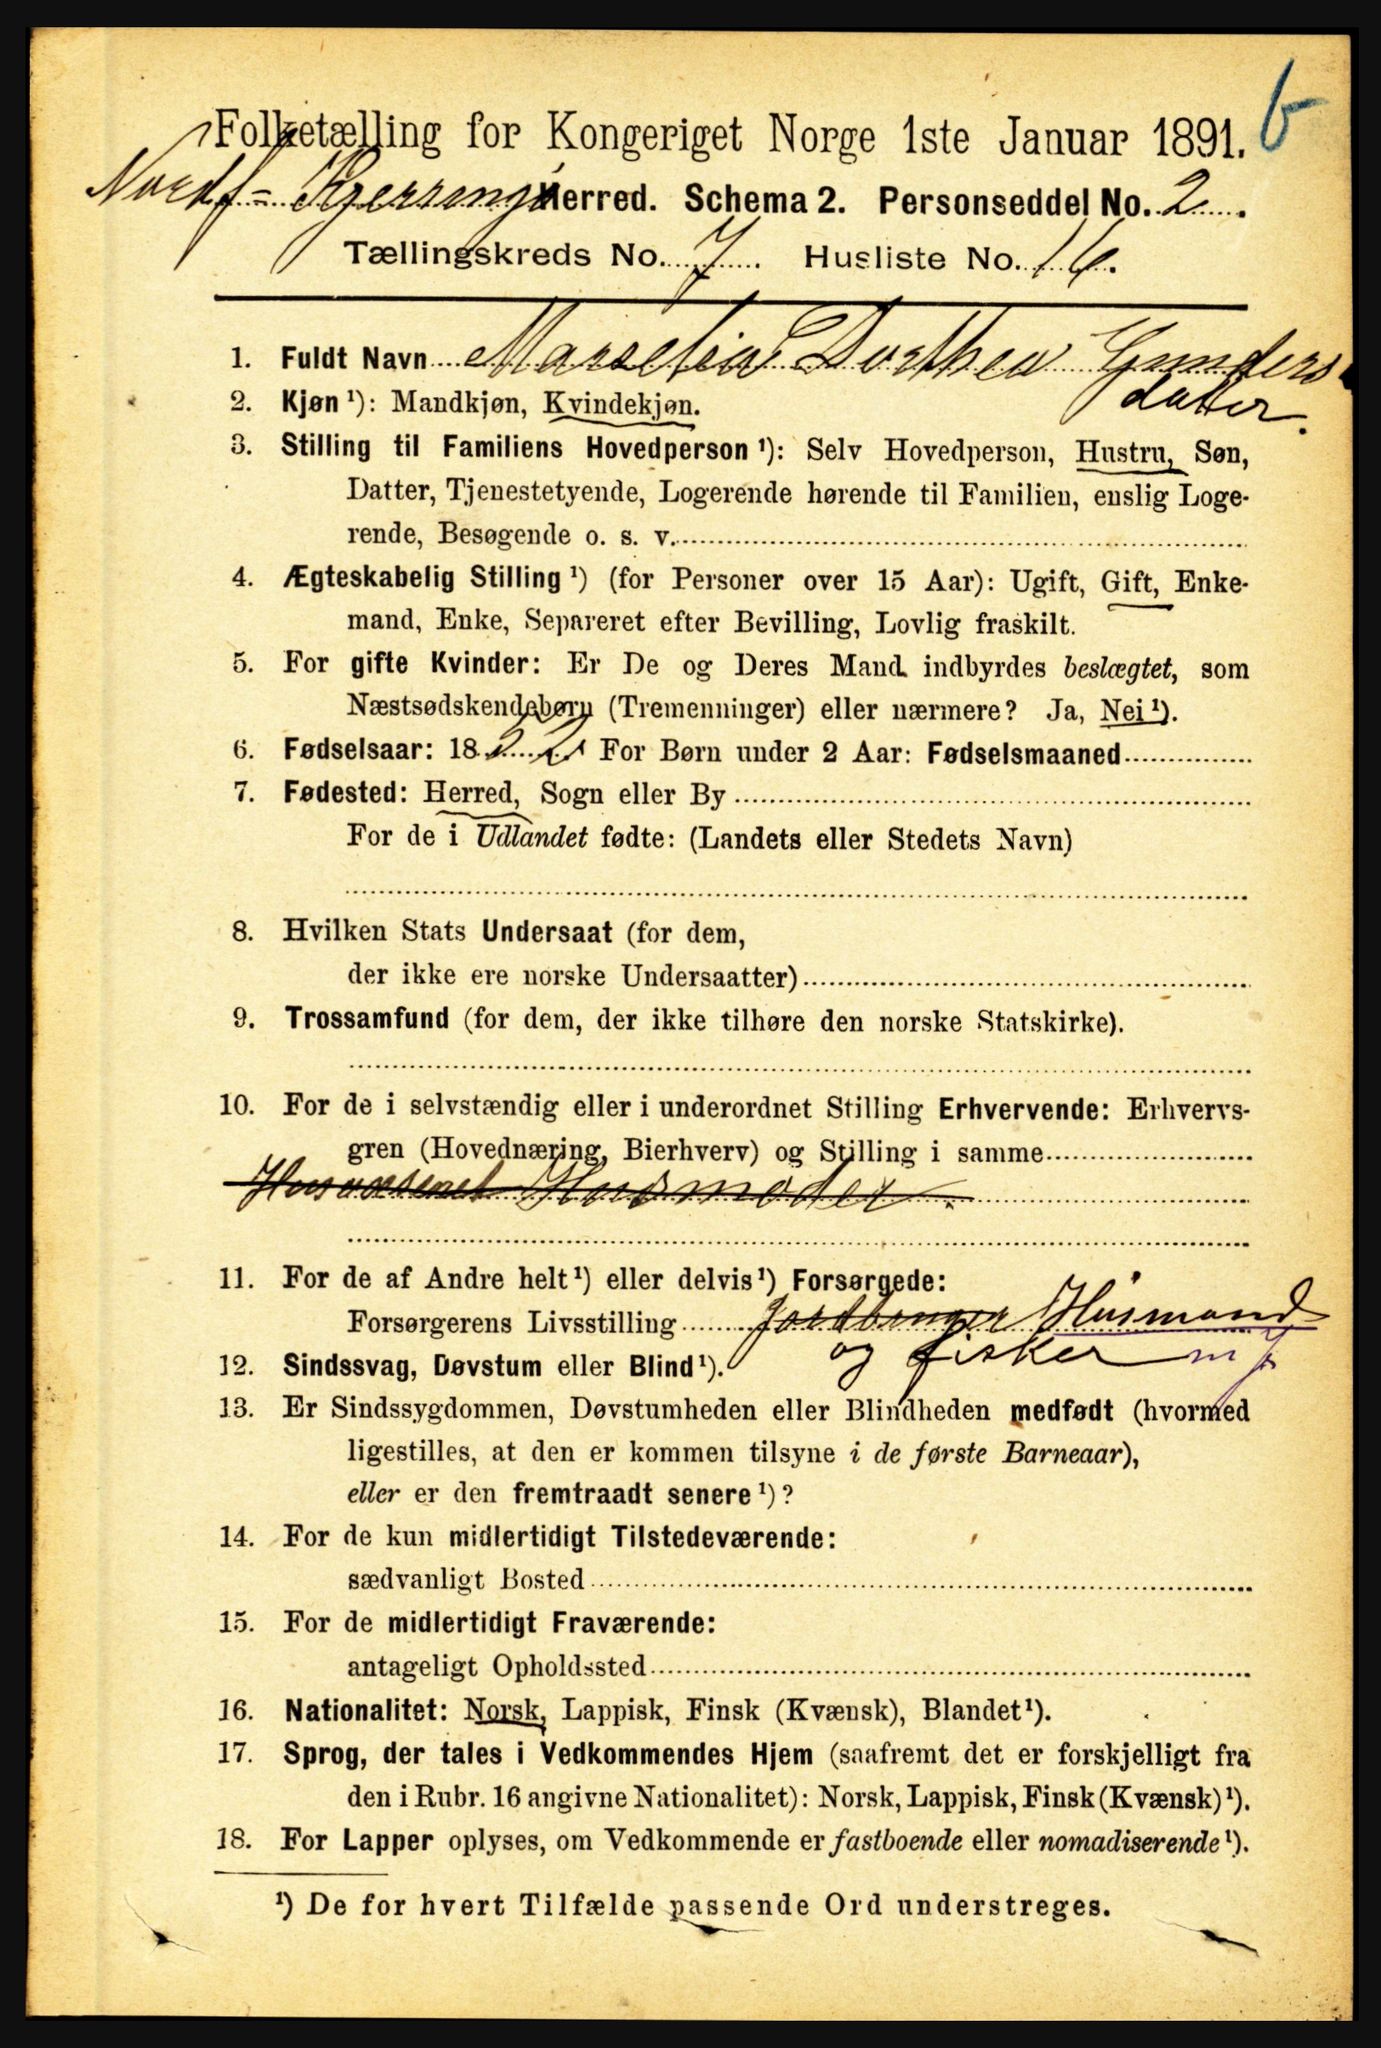 6
Folketælling for Kongeriget Norge 1ste Januar 1891.
Nordf = Kjerringø Herred. Schema 2. Personseddel No. 2.
Tællingskreds No. 7. Husliste No. 16.
1. Fuldt Navn Dorthea Gunders
datter.
2. Kjøn ¹): Mandkjøn, Kvindekjøn.
3. Stilling til Familiens Hovedperson ¹): Selv Hovedperson, Hustru, Søn,
Datter, Tjenestetyende, Logerende hørende til Familien, enslig Loge-
rende, Besøgende o. s. v.
4. Ægteskabelig Stilling ¹) (for Personer over 15 Aar): Ugift, Gift, Enke-
mand, Enke, Separeret efter Bevilling, Lovlig fraskilt.
5. For gifte Kvinder: Er De og Deres Mand indbyrdes beslægtet, som
Næstsødskendebørn (Tremenninger) eller nærmere? Ja, Nei ¹).
6. Fødselsaar: 1822 For Børn under 2 Aar: Fødselsmaaned
7. Fødested: Herred, Sogn eller By
For de i Udlandet fødte: (Landets eller Stedets Navn)
8. Hvilken Stats Undersaat (for dem,
der ikke ere norske Undersaatter)
9. Trossamfund (for dem, der ikke tilhøre den norske Statskirke).
10. For de i selvstændig eller i underordnet Stilling Erhvervende: Erhvervs-
gren (Hovednæring, Bierhverv) og Stilling i samme
Husvæsenet Husmoder.
11. For de af Andre helt ¹) eller delvis ¹) Forsørgede:
Forsørgerens Livsstilling Jordbruger Husmand
og fisker m J
12. Sindssvag, Døvstum eller Blind ¹).
13. Er Sindssygdommen, Døvstumheden eller Blindheden medfødt (hvormed
ligestilles, at den er kommen tilsyne i de første Barneaar),
eller er den fremtraadt senere ¹)?
14. For de kun midlertidigt Tilstedeværende:
sædvanligt Bosted
15. For de midlertidigt Fraværende:
antageligt Opholdssted
16. Nationalitet: Norsk, Lappisk, Finsk (Kvænsk), Blandet ¹).
17. Sprog, der tales i Vedkommendes Hjem (saafremt det er forskjelligt fra
den i Rubr. 16 angivne Nationalitet): Norsk, Lappisk, Finsk (Kvænsk) ¹).
18. For Lapper oplyses, om Vedkommende er fastboende eller nomadiserende ¹).
¹) De for hvert Tilfælde passende Ord understreges.